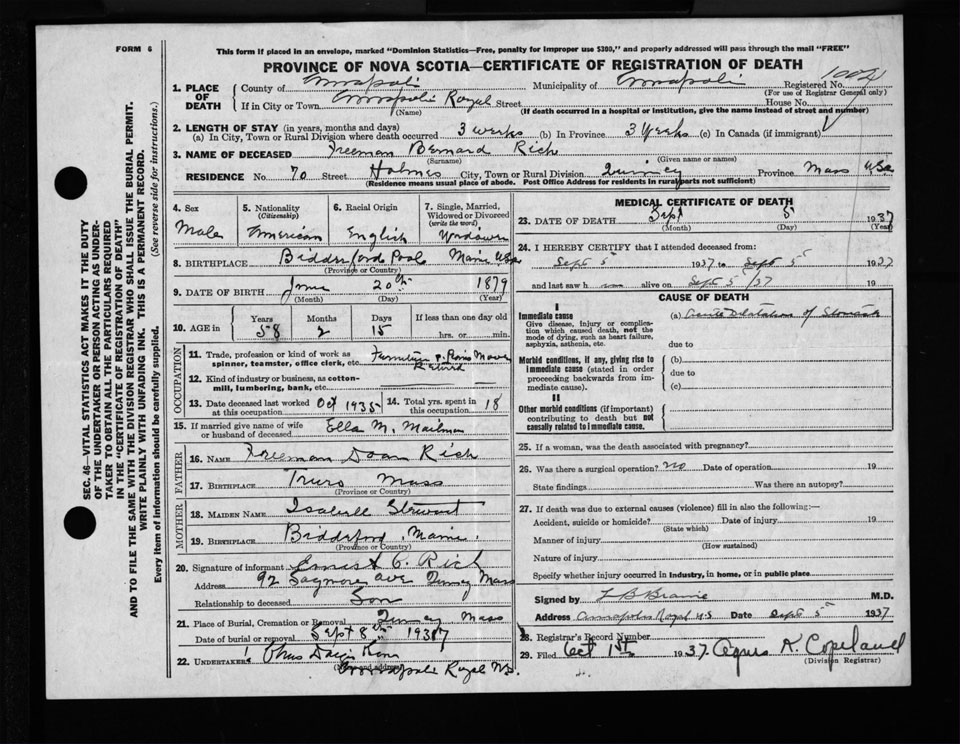 FORM 6
This form if placed in an envelope, marked "Dominion Statistics—Free, penalty for improper use $300," and properly addressed will pass through the mail "FREE"
PROVINCE OF NOVA SCOTIA—CERTIFICATE OF REGISTRATION OF DEATH
SEC. 46—VITAL STATISTICS ACT MAKES IT THE DUTY
OF THE UNDERTAKER OR PERSON ACTING AS UNDER-
TAKER TO OBTAIN ALL THE PARTICULARS REQUIRED
IN THE "CERTIFICATE OF REGISTRATION OF DEATH"
AND TO FILE THE SAME WITH THE DIVISION REGISTRAR WHO SHALL ISSUE THE BURIAL PERMIT.
WRITE PLAINLY WITH UNFADING INK. THIS IS A PERMANENT RECORD.
Every item of Information should be carefully supplied. (See reverse side for instructions.)
1. PLACE OF DEATH
County of Annapolis Municipality of Annapolis Registered No.
(For use of Registrar General only)
If in City or Town Annapolis Royal Street House No.
(Name) (If death occurred in a hospital or institution, give the name instead of street and number)
2. LENGTH OF STAY (in years, months and days)
(a) In City, Town or Rural Division where death occurred 3 weeks (b) In Province 3 Weeks (c) In Canada (if immigrant)
3. NAME OF DECEASED Freeman Bernard Rich
(Surname) (Given name or names)
RESIDENCE No. 70 Street Holmes City, Town or Rural Division Quincy Province Mass USA
(Residence means usual place of abode. Post Office Address for residents in rural parts not sufficient)
4. Sex Male
5. Nationality (Citizenship) American
6. Racial Origin English
7. Single, Married, Widowed or Divorced (write the word) Widower
8. BIRTHPLACE Biddeford Pool Maine USA
(Province or Country)
9. DATE OF BIRTH June 20th 1879
(Month) (Day) (Year)
10. AGE in Years 58 Months 2 Days 15 If less than one day old
hrs. or min.
OCCUPATION
11. Trade, profession or kind of work as spinner, teamster, office clerk, etc. Furniture & Piano Mover
Retired
12. Kind of industry or business, as cotton-mill, lumbering, bank, etc.
13. Date deceased last worked at this occupation Oct 1935
14. Total yrs. spent in this occupation 18
15. If married give name of wife or husband of deceased Ella M. Mailman
FATHER
16. NAME Freeman Doan Rich
17. BIRTHPLACE Truro Mass
(Province or Country)
MOTHER
18. MAIDEN NAME Isabell Stewart
19. BIRTHPLACE Biddeford, Maine
(Province or Country)
20. Signature of informant Ernest C. Rich
Address 92 Sagmore ave Quincy Mass
Relationship to deceased Son
21. Place of Burial, Cremation or Removal Quincy Mass
Date of burial or removal Sept 8th 1937
22. UNDERTAKER
Annapolis Royal N.S.
MEDICAL CERTIFICATE OF DEATH
23. DATE OF DEATH Sept 5 1937
(Month) (Day) (Year)
24. I HEREBY CERTIFY that I attended deceased from:
Sept 5 1937 to Sept 5 1937
and last saw h im alive on Sept 5 /37
CAUSE OF DEATH
I
Immediate cause (a) Acute Dilatation of Stomach
Give disease, injury or complication which caused death, not the mode of dying, such as heart failure, asphyxia, asthenia, etc.
due to
Morbid conditions, if any, giving rise to immediate cause (stated in order proceeding backwards from immediate cause).
(b)
due to
(c)
II
Other morbid conditions (if important) contributing to death but not causally related to immediate cause.
25. If a woman, was the death associated with pregnancy?
26. Was there a surgical operation? no Date of operation 19
State findings Was there an autopsy?
27. If death was due to external causes (violence) fill in also the following:—
Accident, suicide or homicide? Date of injury 19
(State which)
Manner of injury
(How sustained)
Nature of injury
Specify whether injury occurred in industry, in home, or in public place
Signed by L B Braine M.D.
Address Annapolis Royal N.S Date Sept 5 1937
28. Registrar's Record Number
29. Filed Oct 1st 1937 Agnes K. Copeland
(Division Registrar)